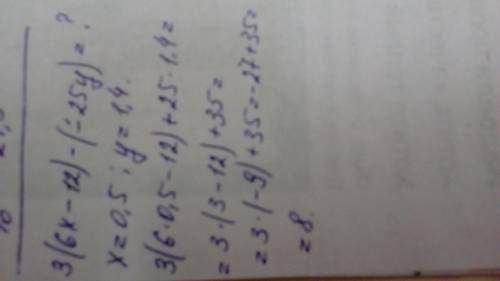 3(6x-12)-(-25y)=?
x=0,5; y=1,4.
3(6·0,5-12)+25·1,4=
=3·(3-12)+35=
=3·(-9)+35=-27+35=
=8.